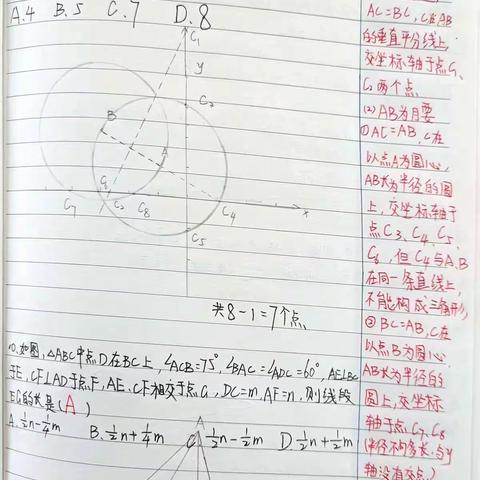 A.4 B.5 C.7 D.8
C₁
y
C₃
B
A
C₆
C₇
C₂
C₈
C₄
x
C₅
共8-1=7个点
10.如图,△ABC中点D在BC上,∠ACB=75°,∠BAC=∠ADC=60°,AE⊥BC
于E,CF⊥AD于点F,AE、CF相交于点G,DC=m,AF=n,则线段
EG的长是(A)
A.½n-¼m B.½n+¼m C.½n-½m D.½n+½m
A
AC=BC,C在AB
的垂直平分线上,
交坐标轴于点C₁、
C₂两个点
(2)AB为月要
①AC=AB,C在
以点A为圆心,
AB长为半径的圆
上,交坐标轴于
点C₃、C₄、C₅、
C₆,但C₄与A、B
在同一条直线上,
不能构成三角形,
②BC=AB,C在
以点B为圆心
AB长为半径的
圆上,交坐标
轴于点C₇、C₈
(半径不够长,与y
轴没有交点)